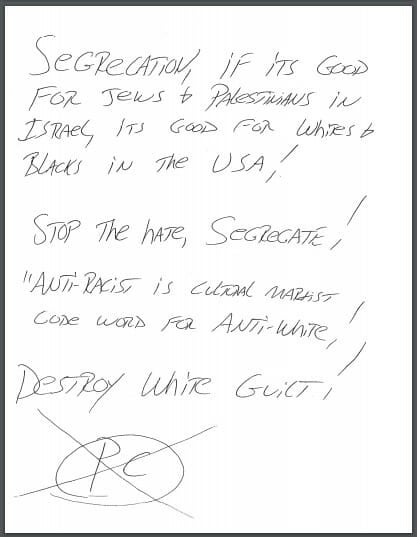 SEGREGATION, if ITS GOOD
FOR JEWS & PALESTINIANS iN
ISRAEL, ITS GOOD FOR WHITES &
BLACKS iN THE USA!
STOP THE HATE, SEGREGATE!
"ANTI-RACIST iS CULTURAL MARXIST
CODE WORD FOR ANTI-WHITE!
DESTROY WHITE GUILT!
PC